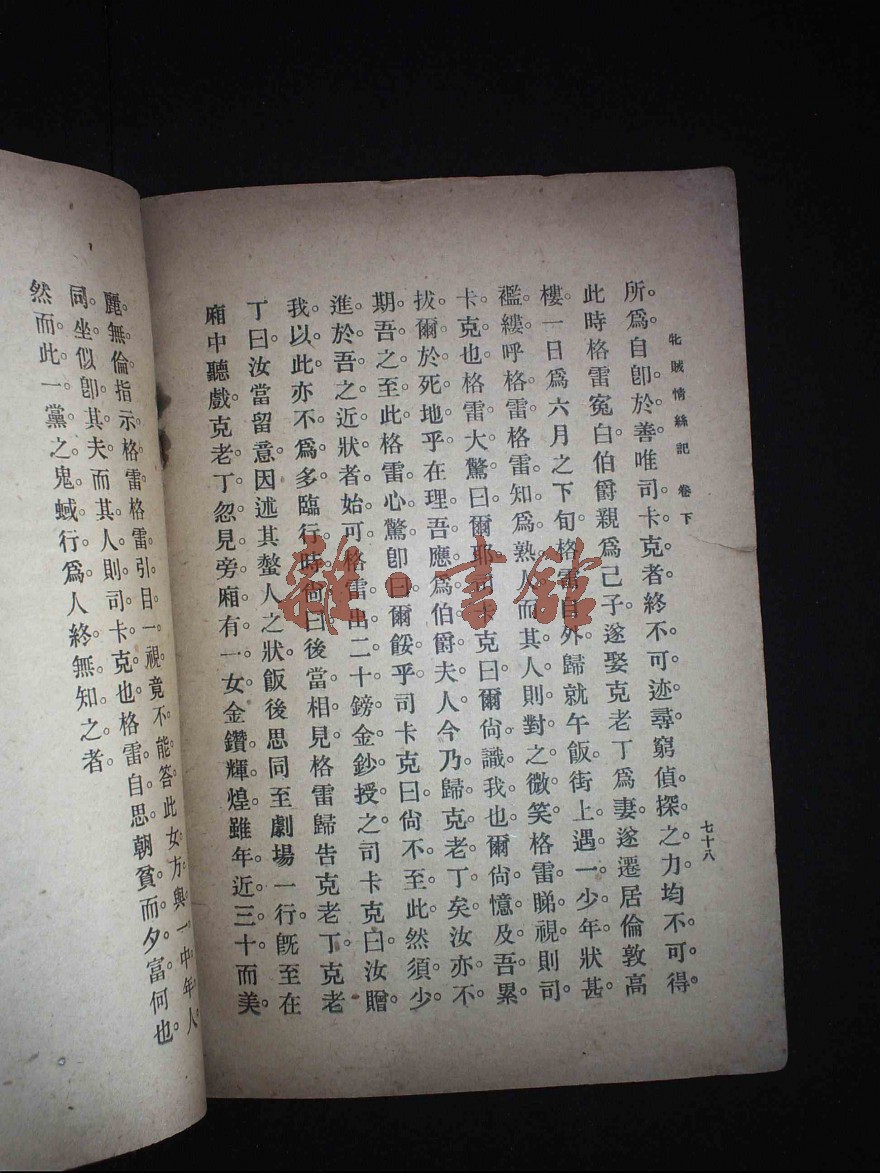 牝賊情絲記 卷下
七十八
所爲。自卽於善。唯司卡克者。終不可迹尋。窮偵探之力。均不可得。
此時格雷寃白。伯爵親爲己子。遂娶克老丁爲妻。遂遷居倫敦高
樓。一日爲六月之下旬。格雷自外歸就午飯。街上遇一少年。狀甚
襤縷。呼格雷。格雷知爲熟人。而其人則對之微笑。格雷睇視。則司
卡克也。格雷大驚曰。爾耶。司卡克曰。爾尙識我也。爾尙憶及吾累
拔爾於死地乎。在理吾應爲伯爵夫人。今乃歸克老丁矣。汝亦不
期吾之至此。格雷心驚。卽曰。爾餒乎。司卡克曰。尙不至此。然須少
進於吾之近狀者始可。格雷出二十鎊金鈔授之。司卡克曰。汝贈
我以此。亦不爲多。臨行時。尙曰。後當相見。格雷歸告克老丁。克老
丁曰。汝當留意。因述其螫人之狀。飯後思同至劇場一行。旣至在
廂中聽戲。克老丁忽見旁廂有一女。金鑽輝煌。雖年近三十。而美
麗無倫。指示格雷。格雷引目一視。竟不能答。此女方與一中年人
同坐。似卽其夫。而其人則司卡克也。格雷自思朝貧而夕富。何也。
然而此一黨之鬼蜮行爲。人終無知之者
雜·書館